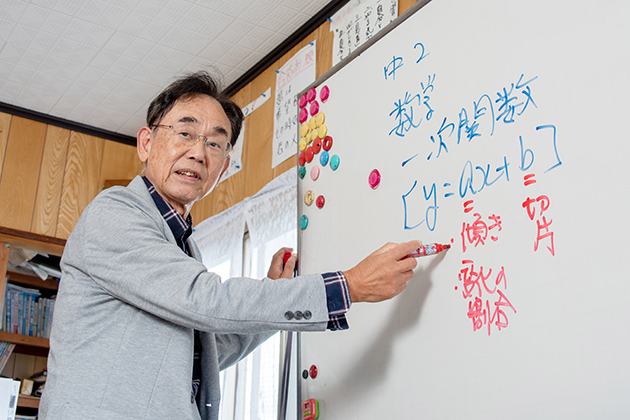 中2
数学
一次関数
[y=ax+b]
=
傾き
変化の
割合
=
切片